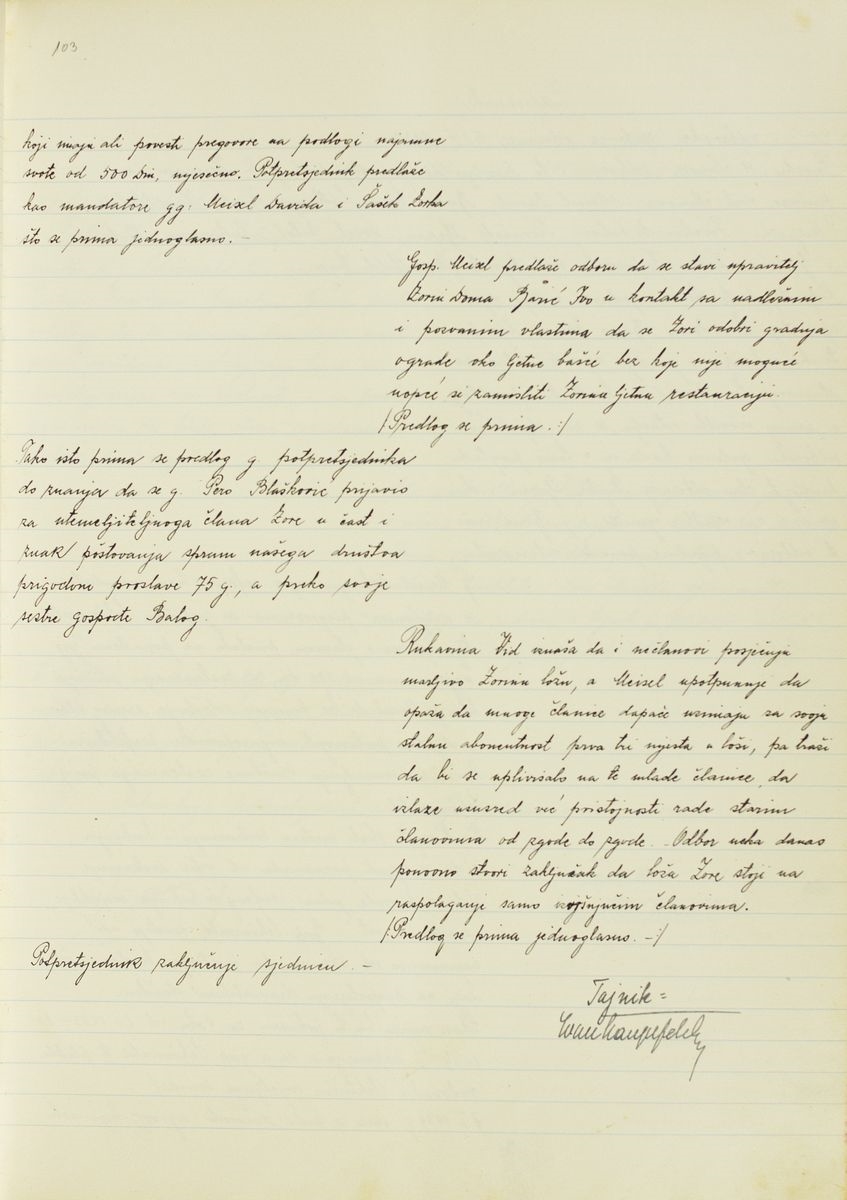 103
koji imaju ali povesti pregovore na podlogi najamne
svote od 500 Din, mjesečno. Potpretsjednik predlaže
kao mandatore gg: Meisel Davida i Šašek Zorka
što se prima jednoglasno. –
Gosp. Meisel predlaže odboru da se stavi upravitelj
Zorin Doma Ivo u kontakt sa nadležnim
i pozvanim vlastima da se Zori odobri gradnja
ograde oko ljetne bašće bez koje nije moguće
uopće si zamisliti Zorinu ljetnu restauraciju.
/:Predlog se prima.:/
Tako isto prima se predlog g. potpretsjednika
do znanja da se g. Pero Blašković prijavio
za utemeljiteljnoga člana Zore u čast i
znak poštovanja spram našega društva
prigodom proslave 75 g., a preko svoje
sestre gospođe Balog.
Rukavina Vid iznaša da i nečlanovi posjećuju
marljivo Zorinu ložu, a Meisel upotpunuje da
opaža da mnoge članice dapače uzimaju za svoju
stalnu abonentnost prva tri mjesta u loži, pa traži
da bi se uplivisalo na te mlade članice, da
izlaze ususred već pristojnosti rade starim
članovima od zgode do zgode. Odbor neka danas
ponovno stvori zaključak da loža Zore stoji na
raspolaganje samo članovima.
/:Predlog se prima jednoglasno. –:/
Potpretsjednik zaključuje sjednicu. –
Tajnik =